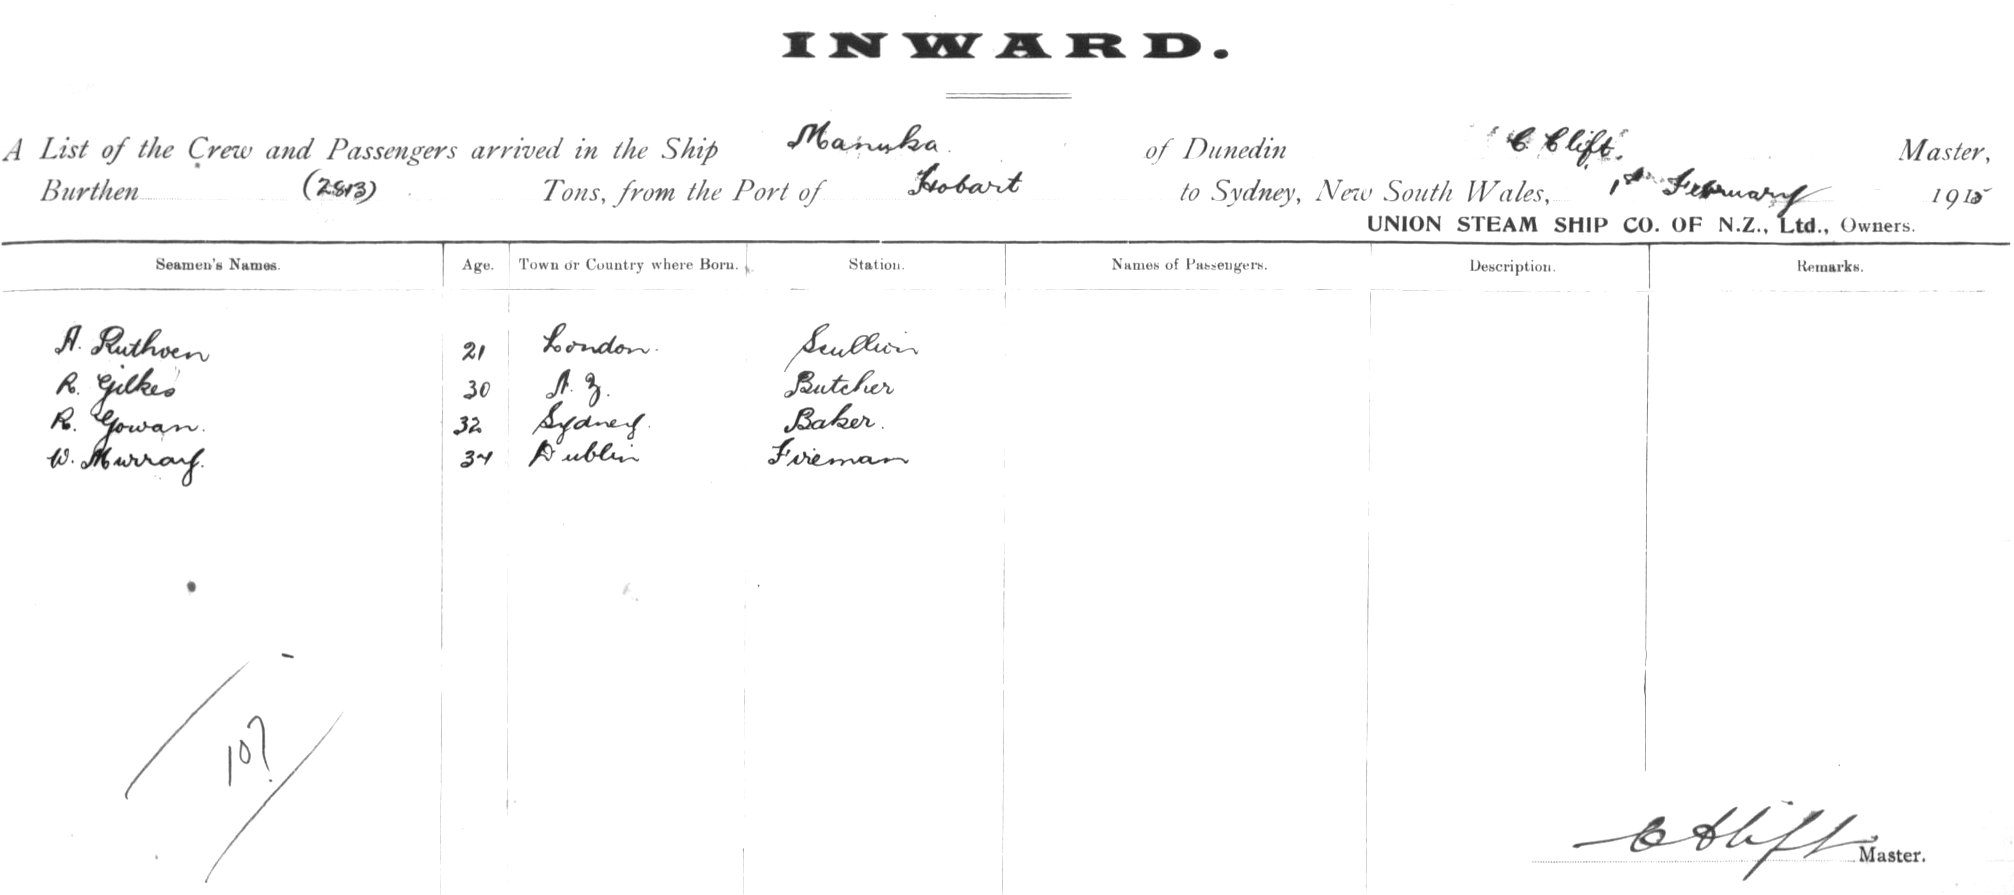 INWARD.
A List of the Crew and Passengers arrived in the Ship Manuka of Dunedin C. Clift. Master,
Burthen (2813) Tons, from the Port of Hobart to Sydney, New South Wales, 1st February 1915
UNION STEAM SHIP CO. OF N.Z., Ltd., Owners.
Seamen's Names. Age. Town or Country where Born. Station. Names of Passengers. Description. Remarks.
A. Ruthven 21 London. Scullion
R. Gilkes 30 N.Z. Butcher
R. Gowan. 32 Sydney. Baker.
W. Murray. 34 Dublin Fireman
107
C Clift Master.